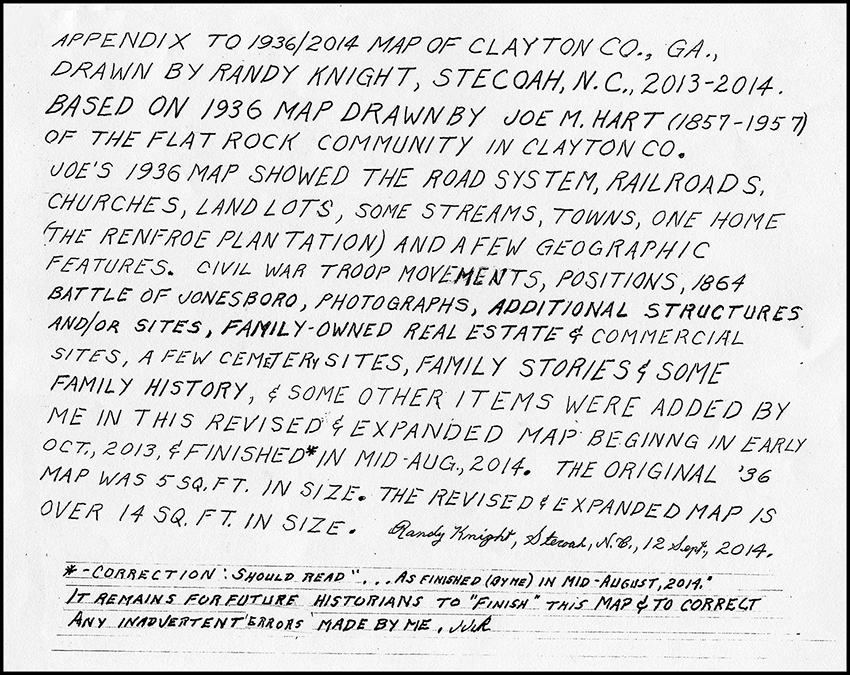 APPENDIX TO 1936/2014 MAP OF CLAYTON CO., GA.,
DRAWN BY RANDY KNIGHT, STECOAH, N.C., 2013-2014.
BASED ON 1936 MAP DRAWN BY JOE M. HART (1857-1957)
OF THE FLAT ROCK COMMUNITY IN CLAYTON CO.
JOE'S 1936 MAP SHOWED THE ROAD SYSTEM, RAILROADS,
CHURCHES, LAND LOTS, SOME STREAMS, TOWNS, ONE HOME
(THE RENFROE PLANTATION) AND A FEW GEOGRAPHIC
FEATURES. CIVIL WAR TROOP MOVEMENTS, POSITIONS, 1864
BATTLE OF JONESBORO, PHOTOGRAPHS, ADDITIONAL STRUCTURES
AND/OR SITES, FAMILY-OWNED REAL ESTATE & COMMERCIAL
SITES, A FEW CEMETERY SITES, FAMILY STORIES & SOME
FAMILY HISTORY, & SOME OTHER ITEMS WERE ADDED BY
ME IN THIS REVISED & EXPANDED MAP BEGINNG IN EARLY
OCT., 2013, & FINISHED* IN MID-AUG., 2014. THE ORIGINAL '36
MAP WAS 5 SQ. FT. IN SIZE. THE REVISED & EXPANDED MAP IS
OVER 14 SQ. FT. IN SIZE. Randy Knight, Stecoah, N.C., 12 Sept., 2014.
*-CORRECTION: SHOULD READ "...AS FINISHED (BY ME) IN MID-AUGUST, 2014."
IT REMAINS FOR FUTURE HISTORIANS TO "FINISH" THIS MAP & TO CORRECT
ANY INADVERTENT 'ERRORS' MADE BY ME,